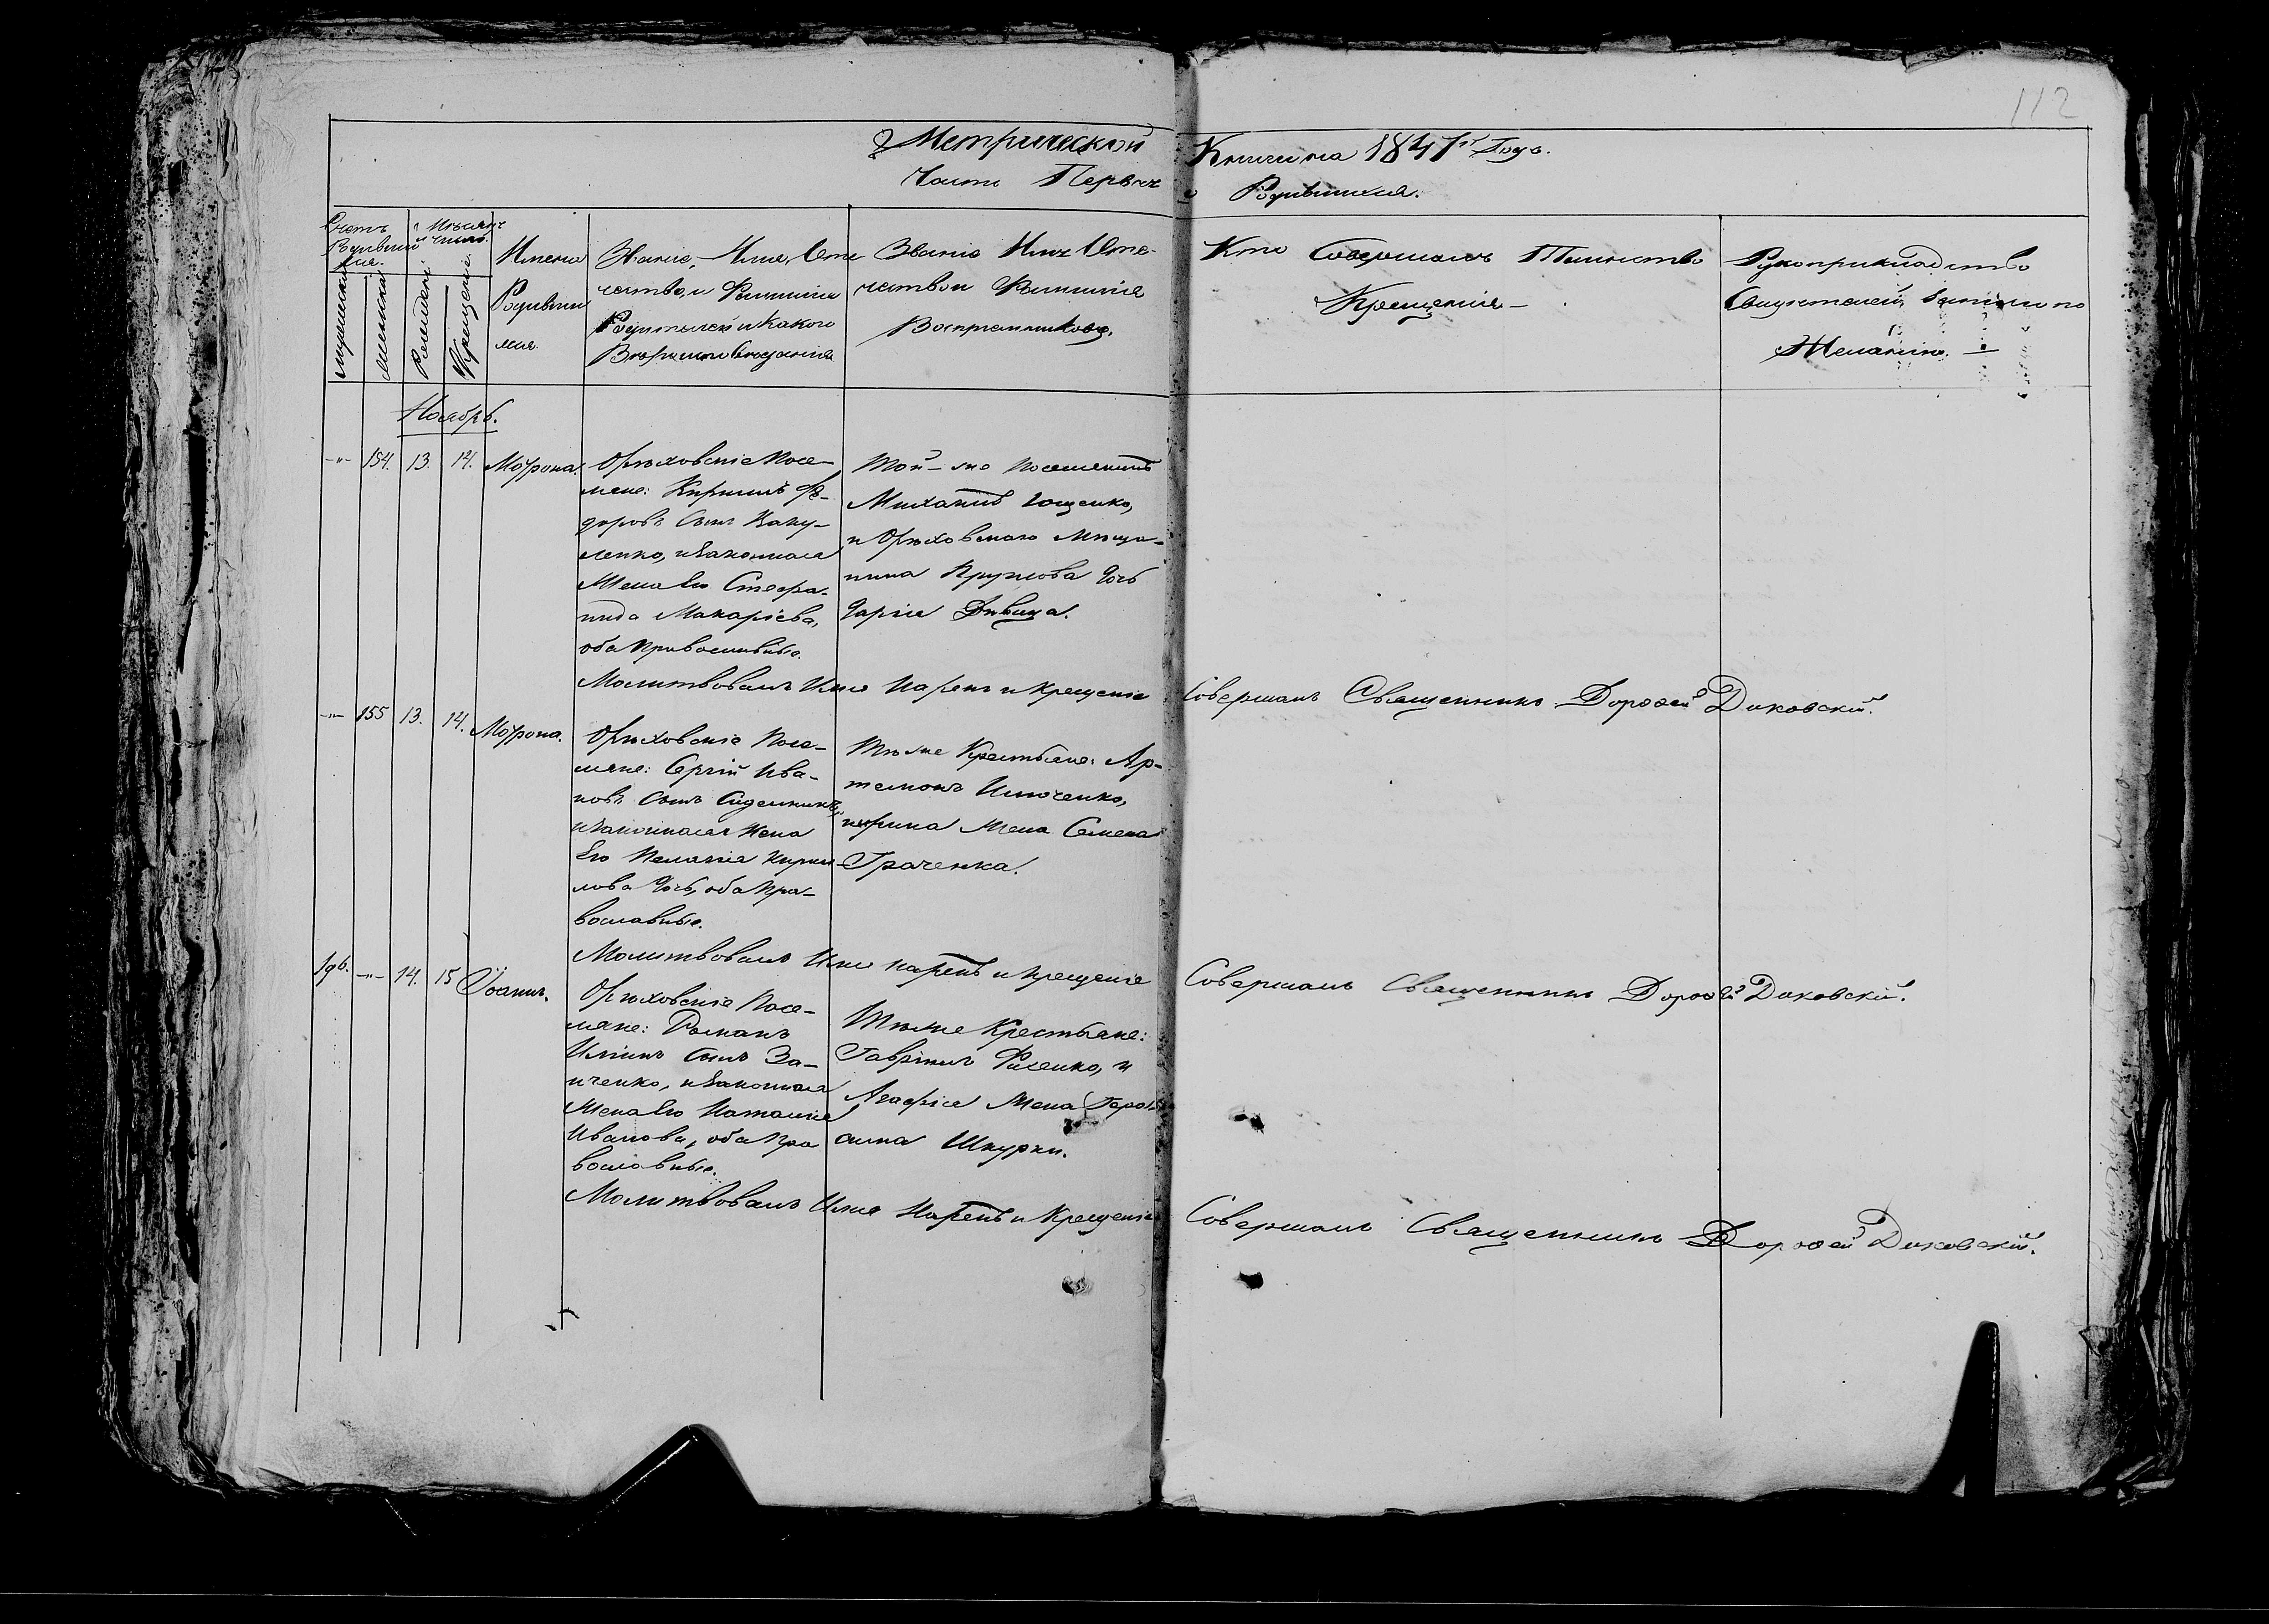 112
Метрической Книги на 1847й Годъ.
Часть Первая о Родившихся.
Счетъ Родившихся.
Мѣсяцъ и Число.
мужескій
женскій
Рожденія
Крещенія.
Имена Родившихся.
Званіе, Имя, Отчество, и Фамилія Родителей и Какого Вѣроисповѣданія
Званіе Имя Отчество и Фамилія Воспріемниковъ.
Кто Совершалъ Таинство Крещенія
Рукоприкладство Свидѣтелей записи по Желанію.
Ноябрь.
-"- 154. 13. 14. Матрона.
Орѣховскіе Посе-
ляне: Кирилъ Фе-
доровъ сынъ
и законная
Жена Его Стефа-
нида Макаріева,
оба православные.
Той-же Поселянинъ
Михаилъ
и Орѣховскаго Мѣща-
нина Круглова дочь
Дарія Дѣвица.
Молитвовалъ Имя Нарекъ и Крещеніе Совершалъ Священникъ Дорофей Диковскій.
-"- 155 13. 14. Матрона.
Орѣховскіе Посе-
ляне: Сергій Ива-
новъ сынъ
и законная Жена
Его Пелагія Кирил-
лова дочь, оба пра-
вославные.
Тѣже Крестьяне: Ар-
темонъ
Жена Семена
Граченка.
Молитвовалъ Имя нарекъ и крещеніе Совершалъ Священникъ Дорофей Диковскій.
196. -"- 14. 15 Іоаннъ.
Орѣховскіе Посе-
ляне: Романъ
Ильинъ сынъ За-
иченко, и законная
Жена Его Наталія
Иванова, оба пра
вославные.
Тѣже Крестьяне:
Гавріилъ и
Агафія Жена Гера-
сима Шкурки.
Молитвовалъ Имя Нарекъ и Крещеніе Совершалъ Священникъ Дорофей Диковскій.